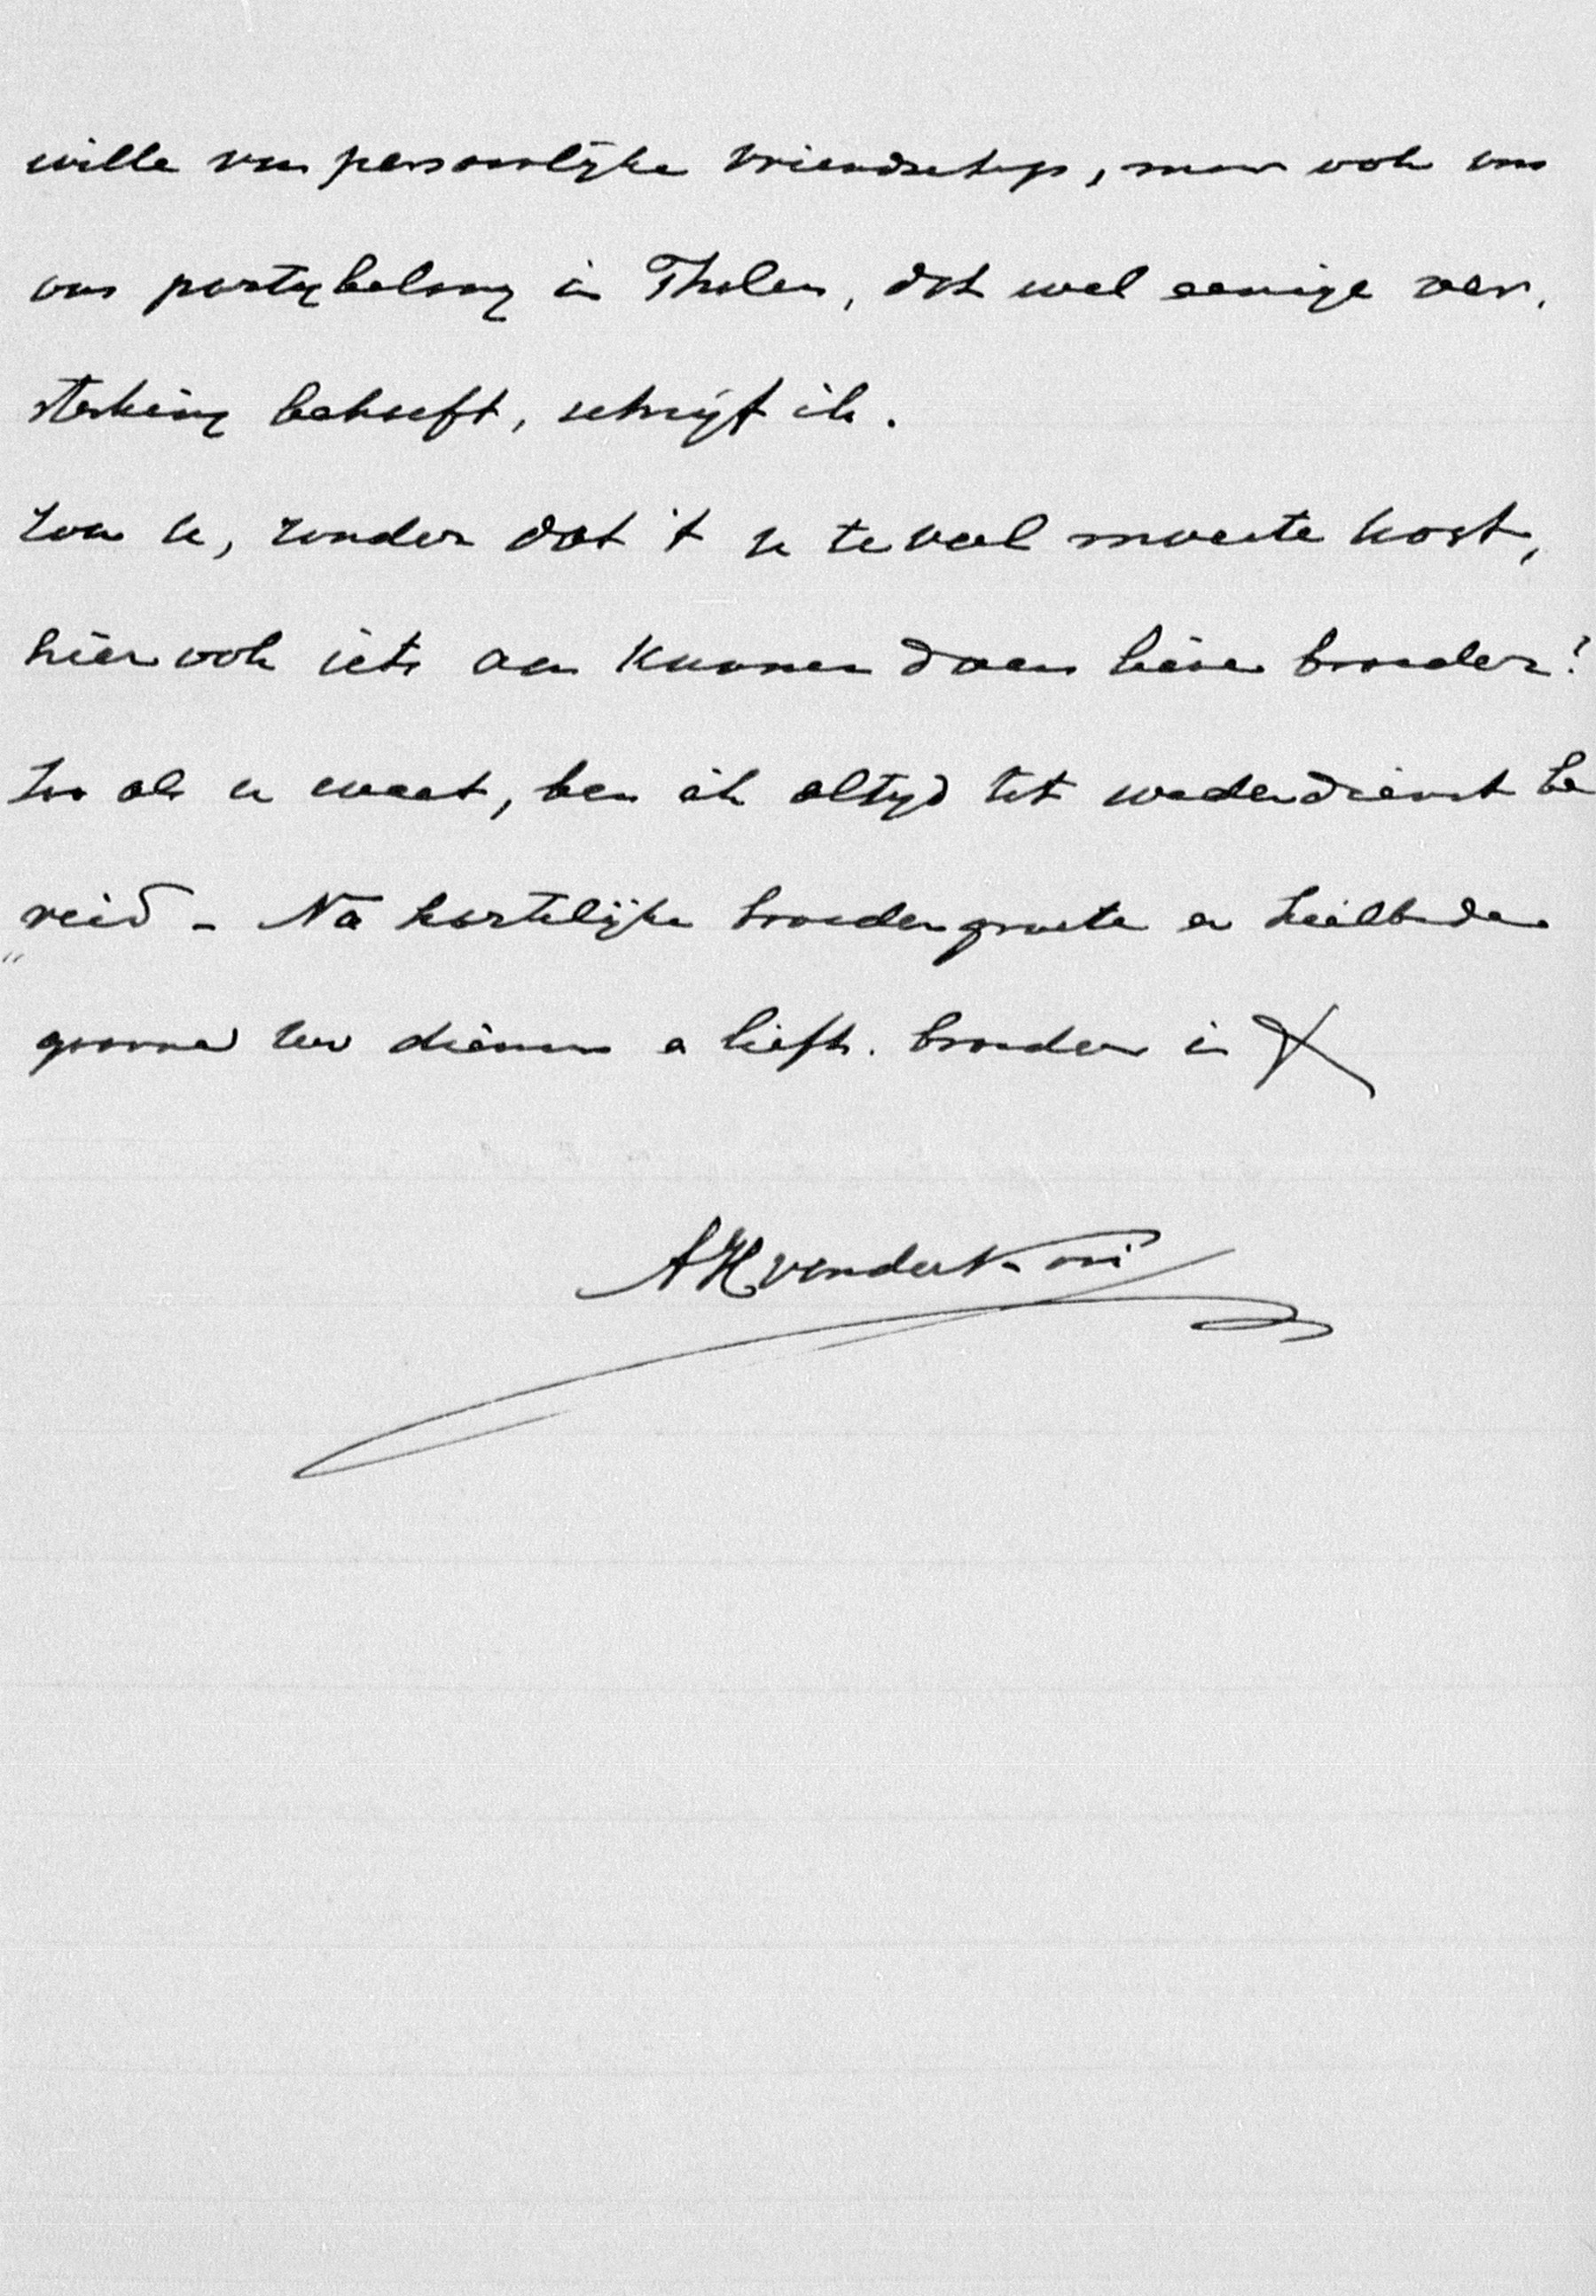 wille van persoonlijke vriendschap, maar ook om
ons partijbelang in Tholen, dat wel eenige ver-
sterking behoeft, schrijf ik.
Zou u, zonder dat 't u te veel moeite kost,
hier ook iets aan kunnen doen lieve broeder?
Zoo als u weet, ben ik altijd tot wederdienst be
reid - Na hartelijke broedergroete en heilbede
gaarne Uw dienaar en liefh. broeder in X
AH van der